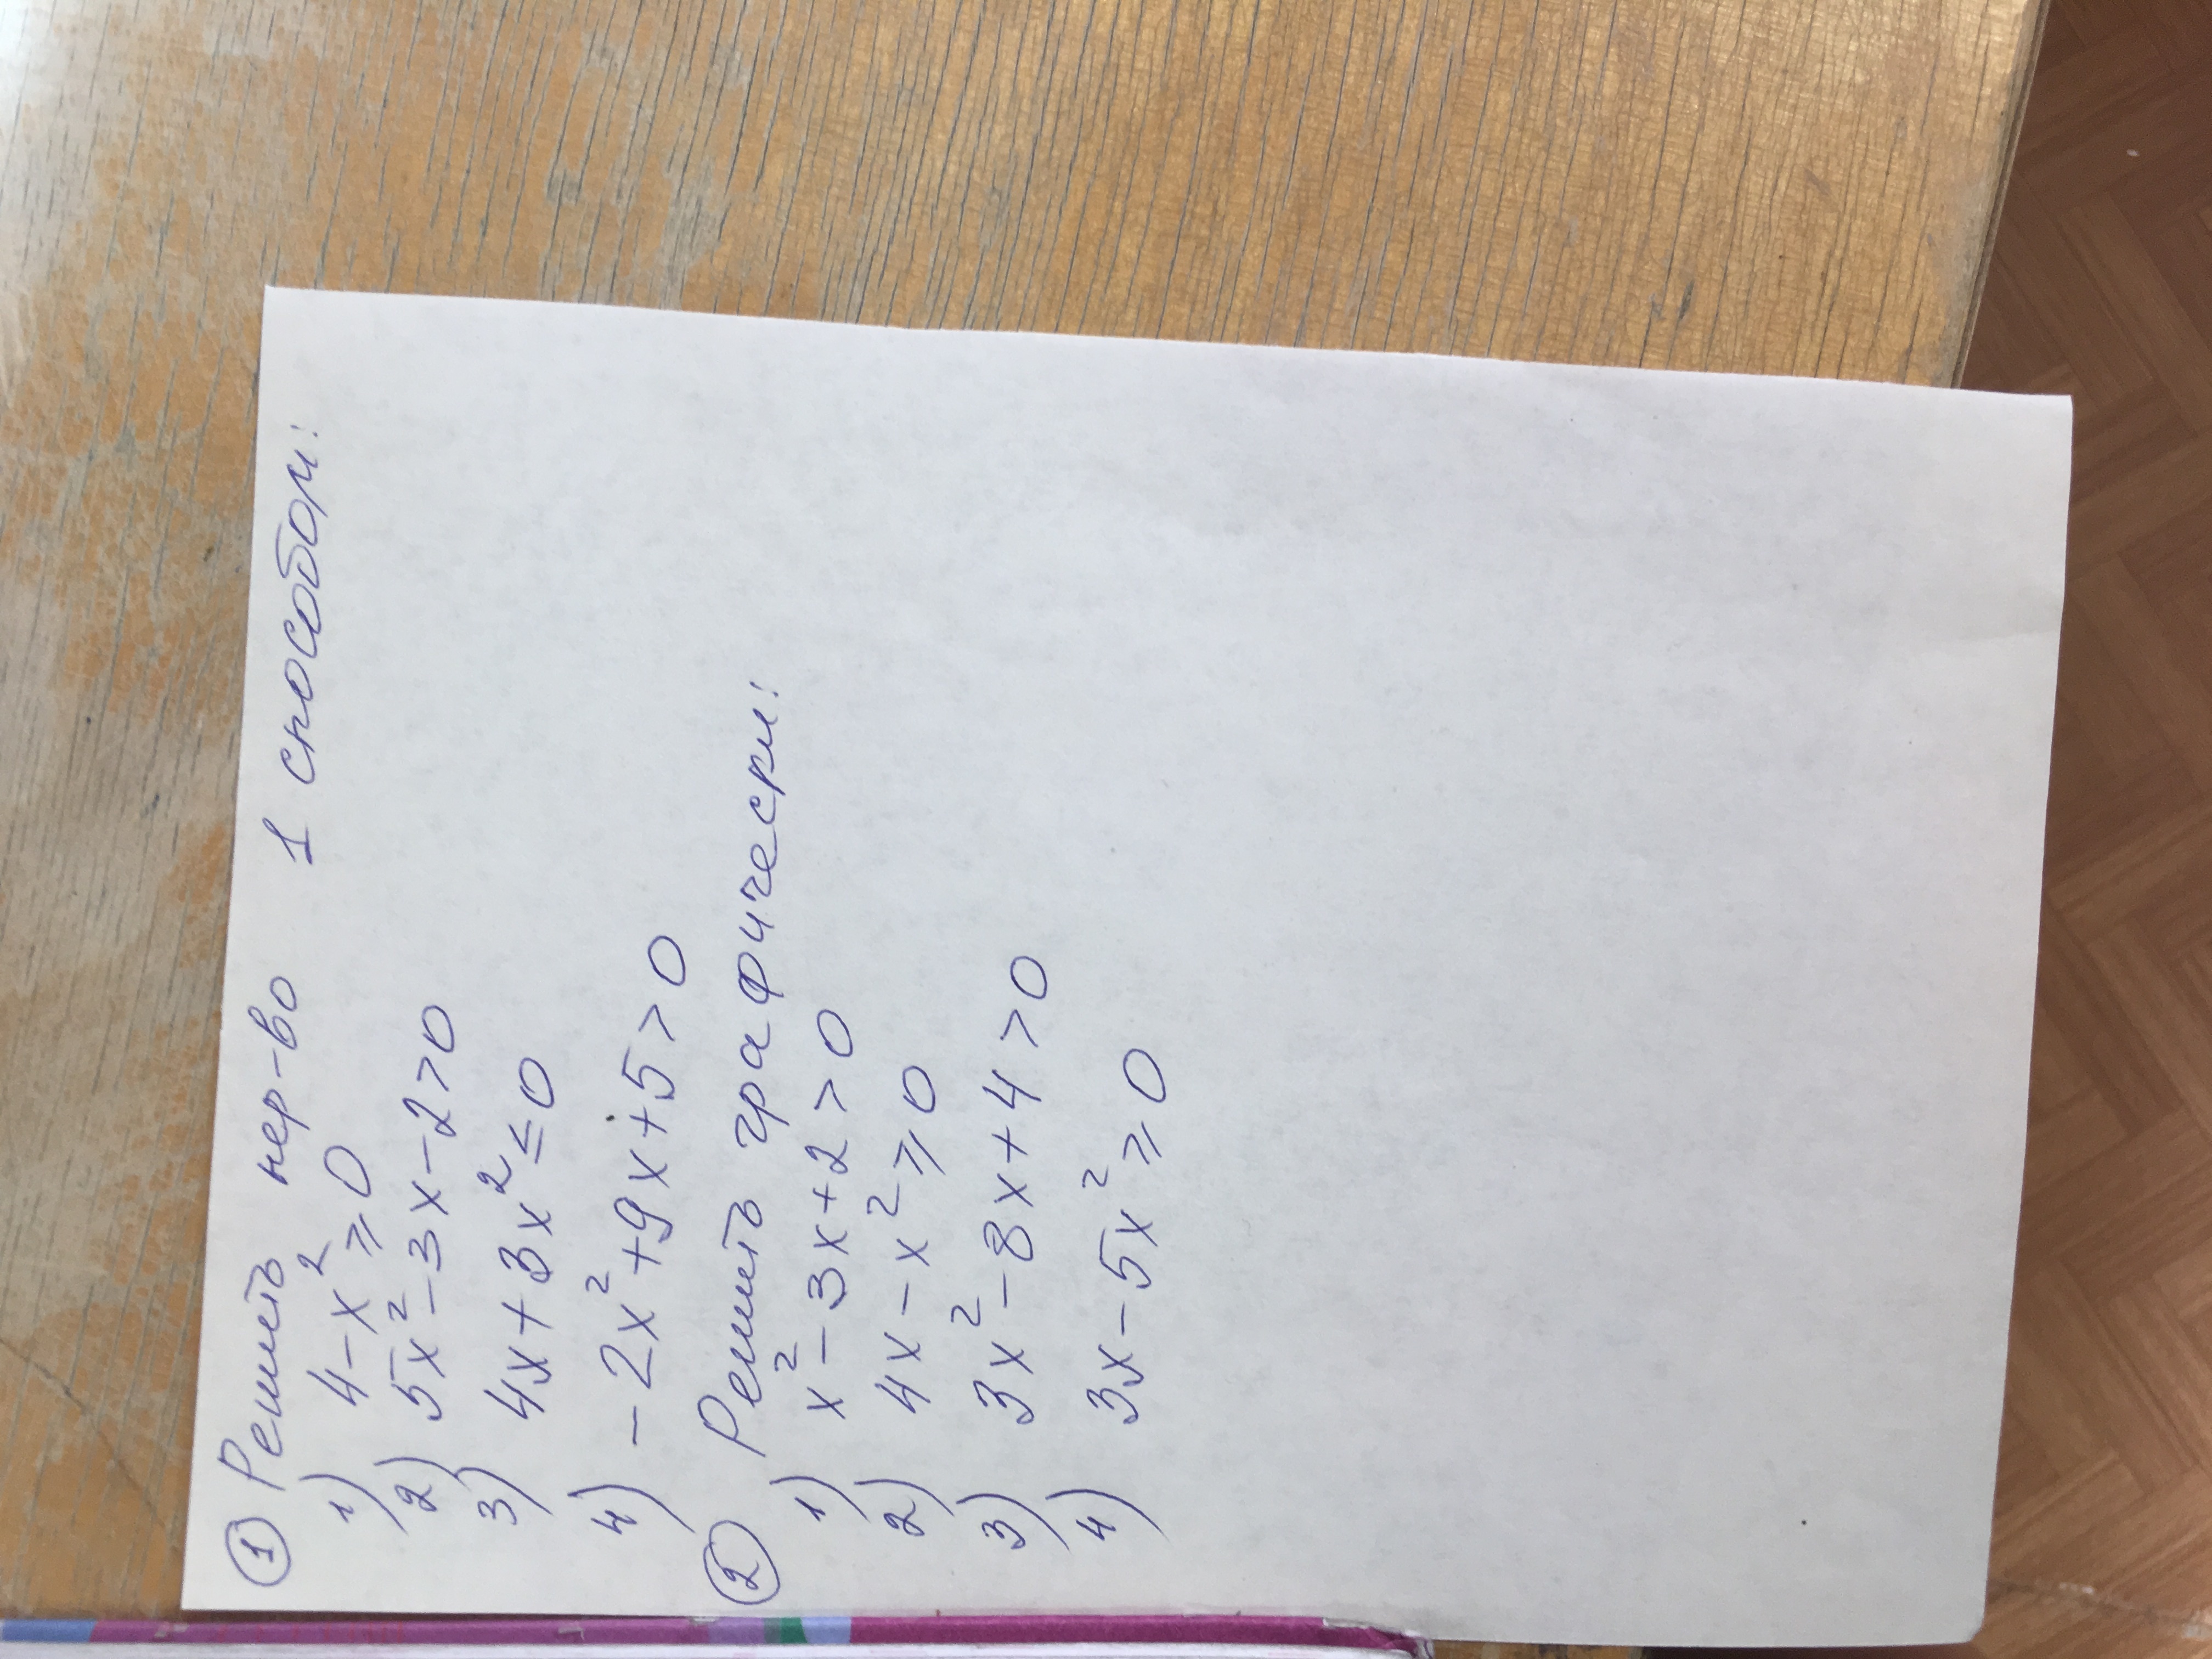 ① Решить нер-во 1 способом:
1) 4-x² ⩾ 0
2) 5x²-3x-2>0
3) 4x+3x² ≤ 0
4) -2x²+9x+5>0
② Решить графически:
1) x²-3x+2>0
2) 4x-x² ⩾ 0
3) 3x²-8x+4>0
4) 3x-5x² ⩾ 0